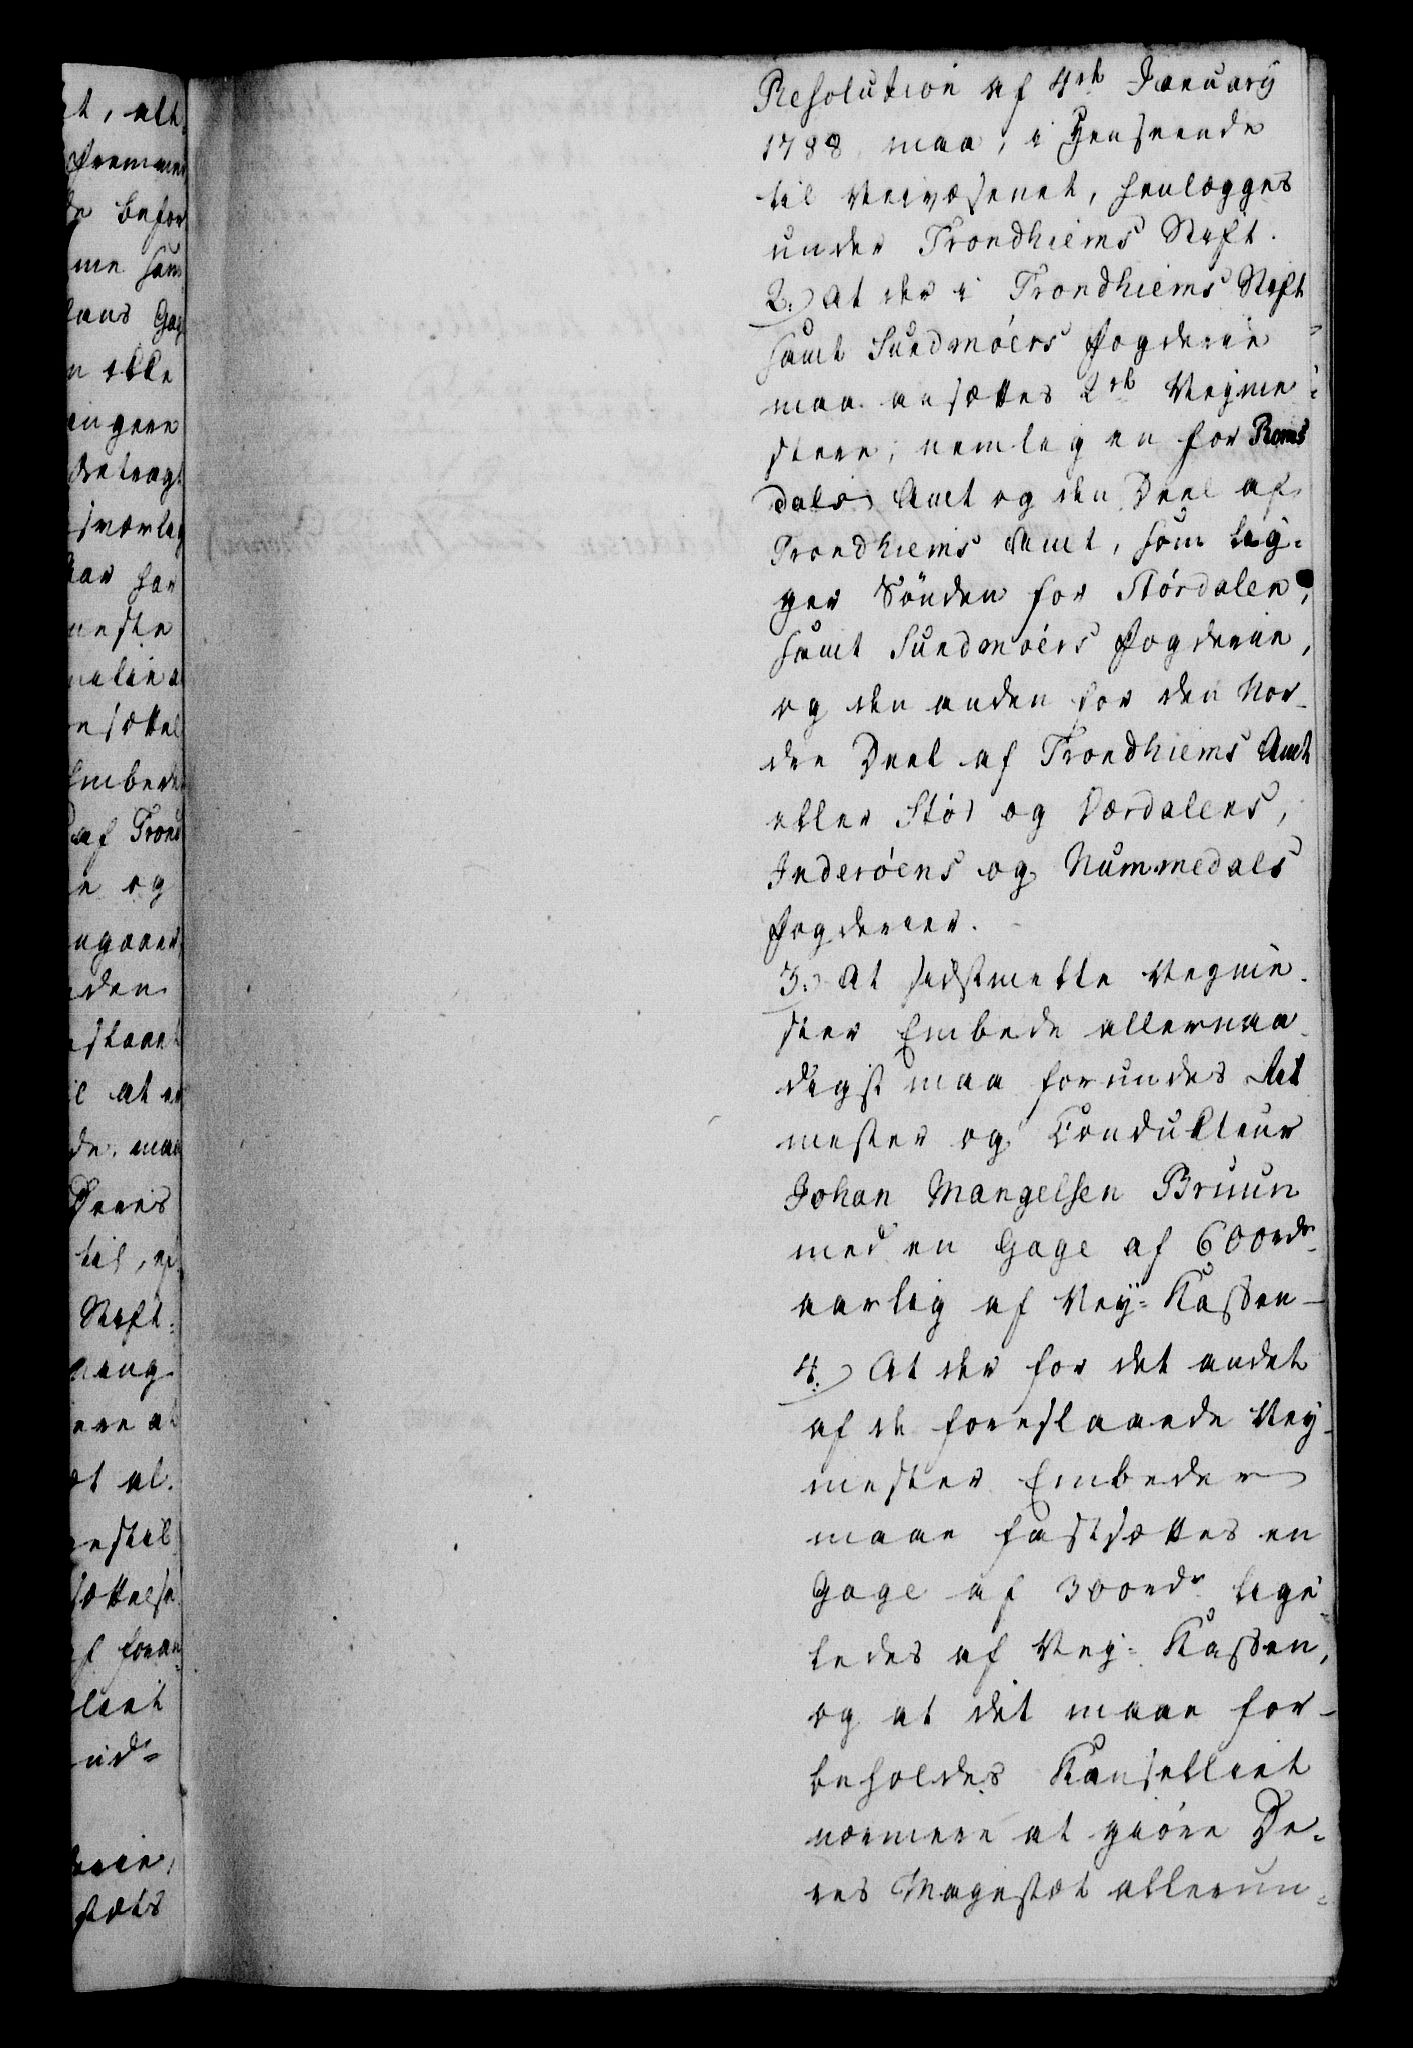 Resolution af 4de January
1788 maa, i Henseende
til Veivæsenet, henlægges
under Trondhiems Stift.
2.) At der i Trondhiems Stift
samt Sundmöers Fogderie
maa ansættes 2de Veyme-
stere; nemlig en for Roms
dals Amt og den Deel af
Trondhiems Amt, som lig-
ger Sönden for Stördalen,
samt Sundmöers Fogderie,
og den anden for den Nor-
dre Deel af Trondhiems Amt
eller Stör og Værdalens,
Inderöens og Nummedals
Fogderier.
3.) At sidstmeldte Veyme-
ster Embede allernaa-
digst maa forundes Rit
mester og Conducteur
Johan Mangelsen Bruun
med en Gage af 600rdr
aarlig af Vey-Kassen-
4.) At der for det andet
af de foreslaaede Vey-
mester Embeder
maae fastsættes en
Gage af 300rdr lige-
ledes af Vey-Kassen,
og at det maae for-
beholdes Kanselliet
nærmere at giöre De-
res Magestæt allerun-